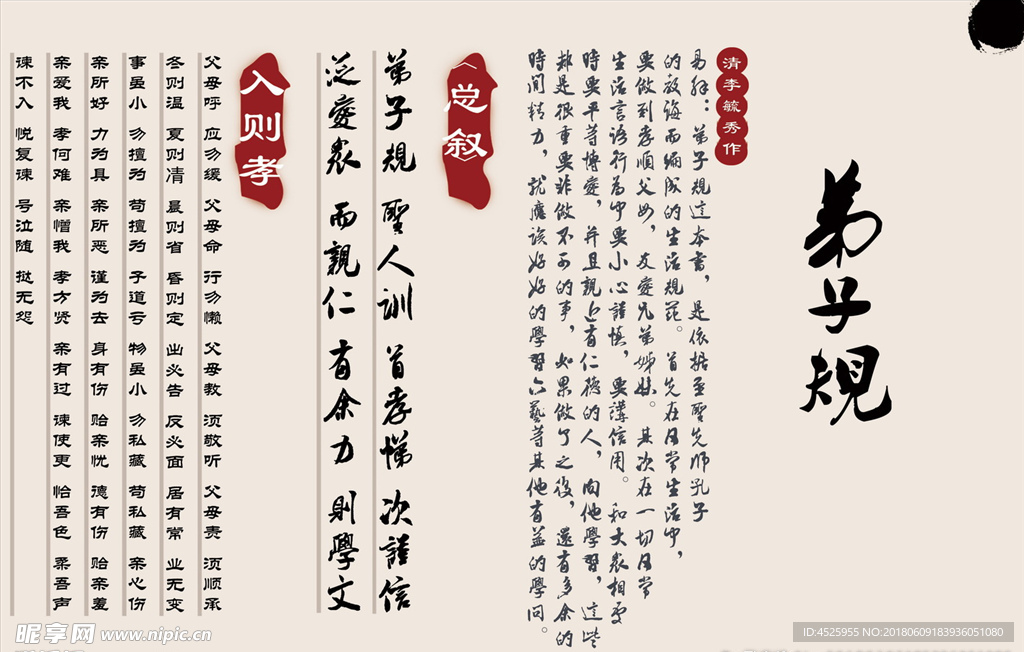 弟子規
清李毓秀作
易解：弟子規這本書，是依据至聖先师孔子
的教誨而编成的生活規范。首先在日常生活中，
要做到孝順父母，友愛兄弟姊妹。其次在一切日常
生活言语行为中要小心謹慎，要講信用。和大衆相處
時要平等博愛，并且親近有仁德的人，向他學習，這些
都是很重要非做不可的事，如果做了之後，還有多余的
時间精力，就應该好好的學習六藝等其他有益的學问。
〈总叙〉
弟子規 聖人训 首孝悌 次謹信
泛愛衆 而親仁 有余力 則學文
入则孝
父母呼 应勿缓 父母命 行勿懒 父母教 须敬听 父母责 须顺承
冬则温 夏则凊 晨则省 昏则定 出必告 反必面 居有常 业无变
事虽小 勿擅为 苟擅为 子道亏 物虽小 勿私藏 苟私藏 亲心伤
亲所好 力为具 亲所恶 谨为去 身有伤 贻亲忧 德有伤 贻亲羞
亲爱我 孝何难 亲憎我 孝方贤 亲有过 谏使更 怡吾色 柔吾声
谏不入 悦复谏 号泣随 挞无怨
昵享网 www.nipic.cn
ID:4525955 NO:20180609183936051080